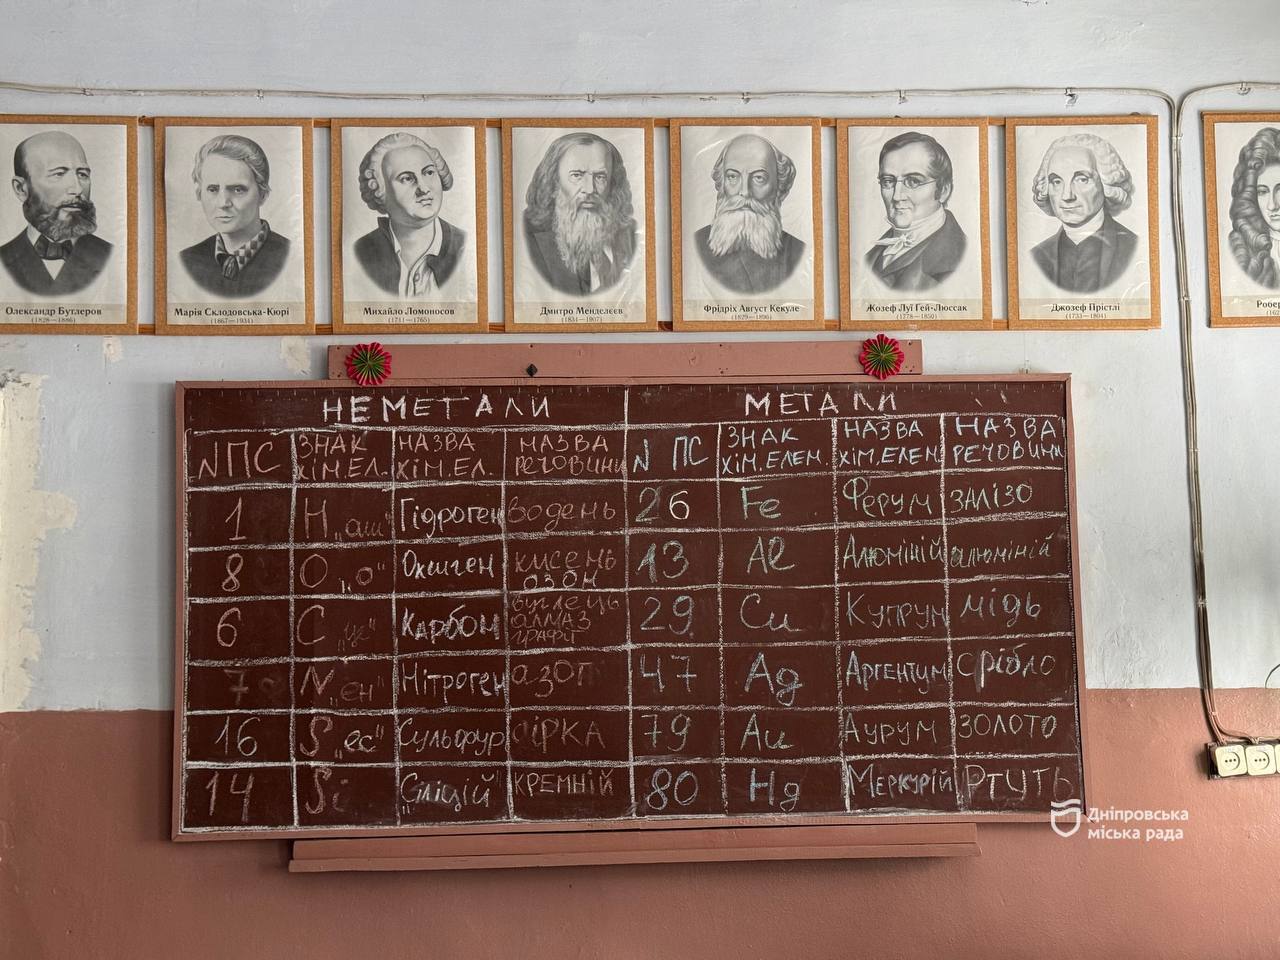 Олександр Бутлеров
(1828—1886)
Марія Склодовська-Кюрі
(1867—1934)
Михайло Ломоносов
(1711—1765)
Дмитро Менделєєв
(1834—1907)
Фрідріх Август Кекуле
(1829—1896)
Жозеф Луї Гей-Люссак
(1778—1850)
Джозеф Прістлі
(1733—1804)
НЕМЕТАЛИ МЕТАЛИ
N ПС ЗНАК ХІМ.ЕЛ. НАЗВА ХІМ.ЕЛ. НАЗВА РЕЧОВИНИ N ПС ЗНАК ХІМ.ЕЛЕМ. НАЗВА ХІМ.ЕЛЕМ НАЗВА РЕЧОВИНИ
1 H „аш" Гідроген водень 26 Fe Ферум ЗАЛІЗО
8 O „о" Оксиген кисень озон 13 Al Алюміній алюміній
6 C „це" Карбон вуглець алмаз графіт 29 Cu Купрум мідь
7 N „ен" Нітроген азот 47 Ag Аргентум срібло
16 S „ес" Сульфур сірка 79 Au Аурум ЗОЛОТО
14 Si „Сіліцій" КРЕМНІЙ 80 Hg Меркурій РТУТЬ
Дніпровська
міська рада